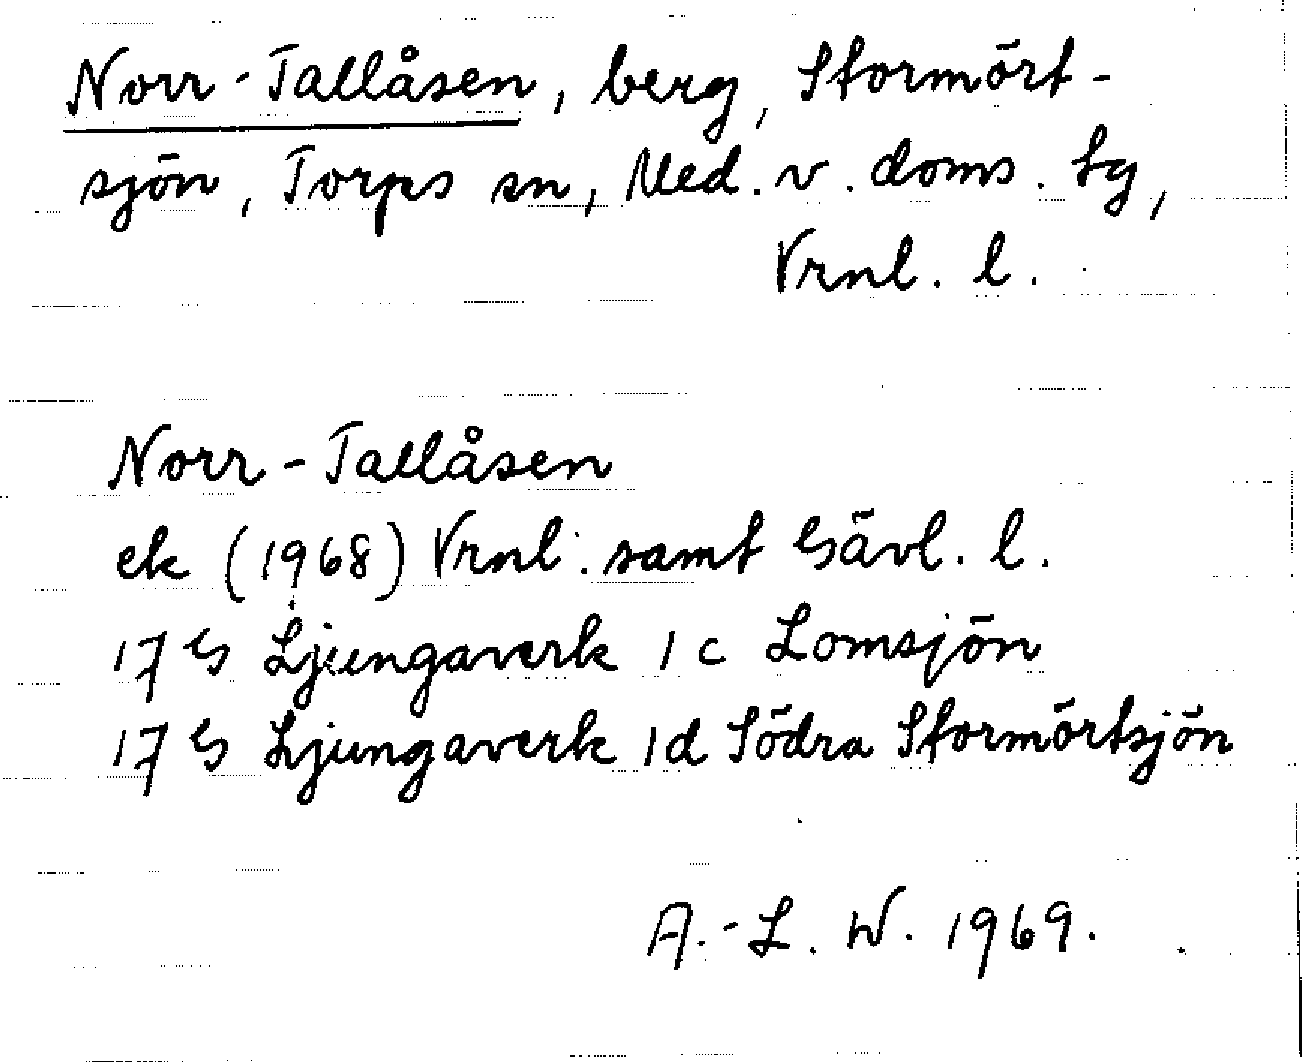 Norr-Tallåsen, berg, Stormört-
sjön, Torps sn, Med. v. doms. tg,
Vrnl. l.
Norr-Tallåsen
ek (1968) Vrnl. samt Gävl. l.
17 G Ljungaverk 1 c Lomsjön
17 G Ljungaverk 1d Södra Stormörtsjön
A.-L. W. 1969.